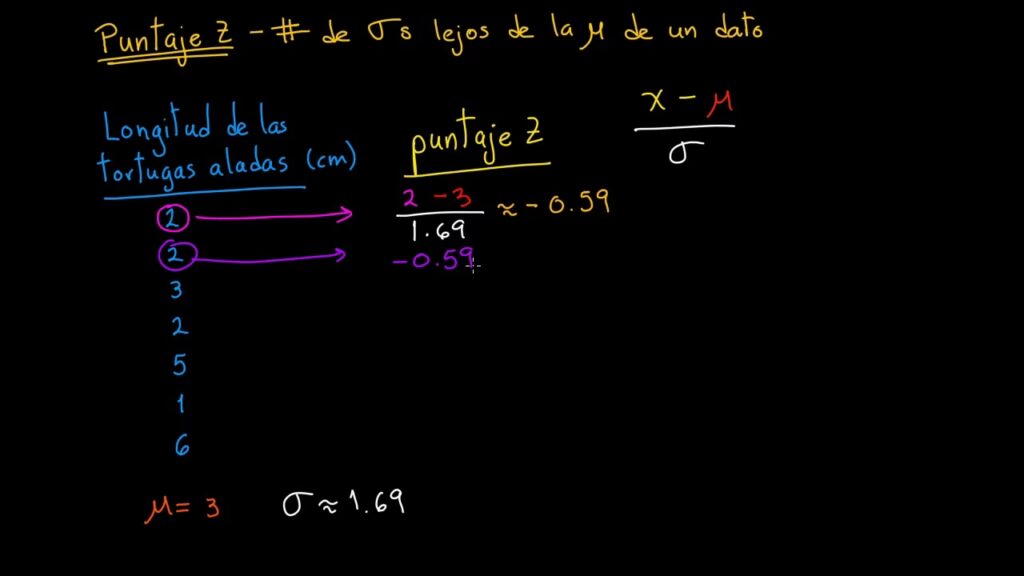 Puntaje Z - # de σs lejos de la μ de un dato
Longitud de las
tortugas aladas (cm)
puntaje Z
x - μ
σ
2
2 - 3
1.69
≈ - 0.59
2
-0.59
3
2
5
1
6
μ = 3
σ ≈ 1.69